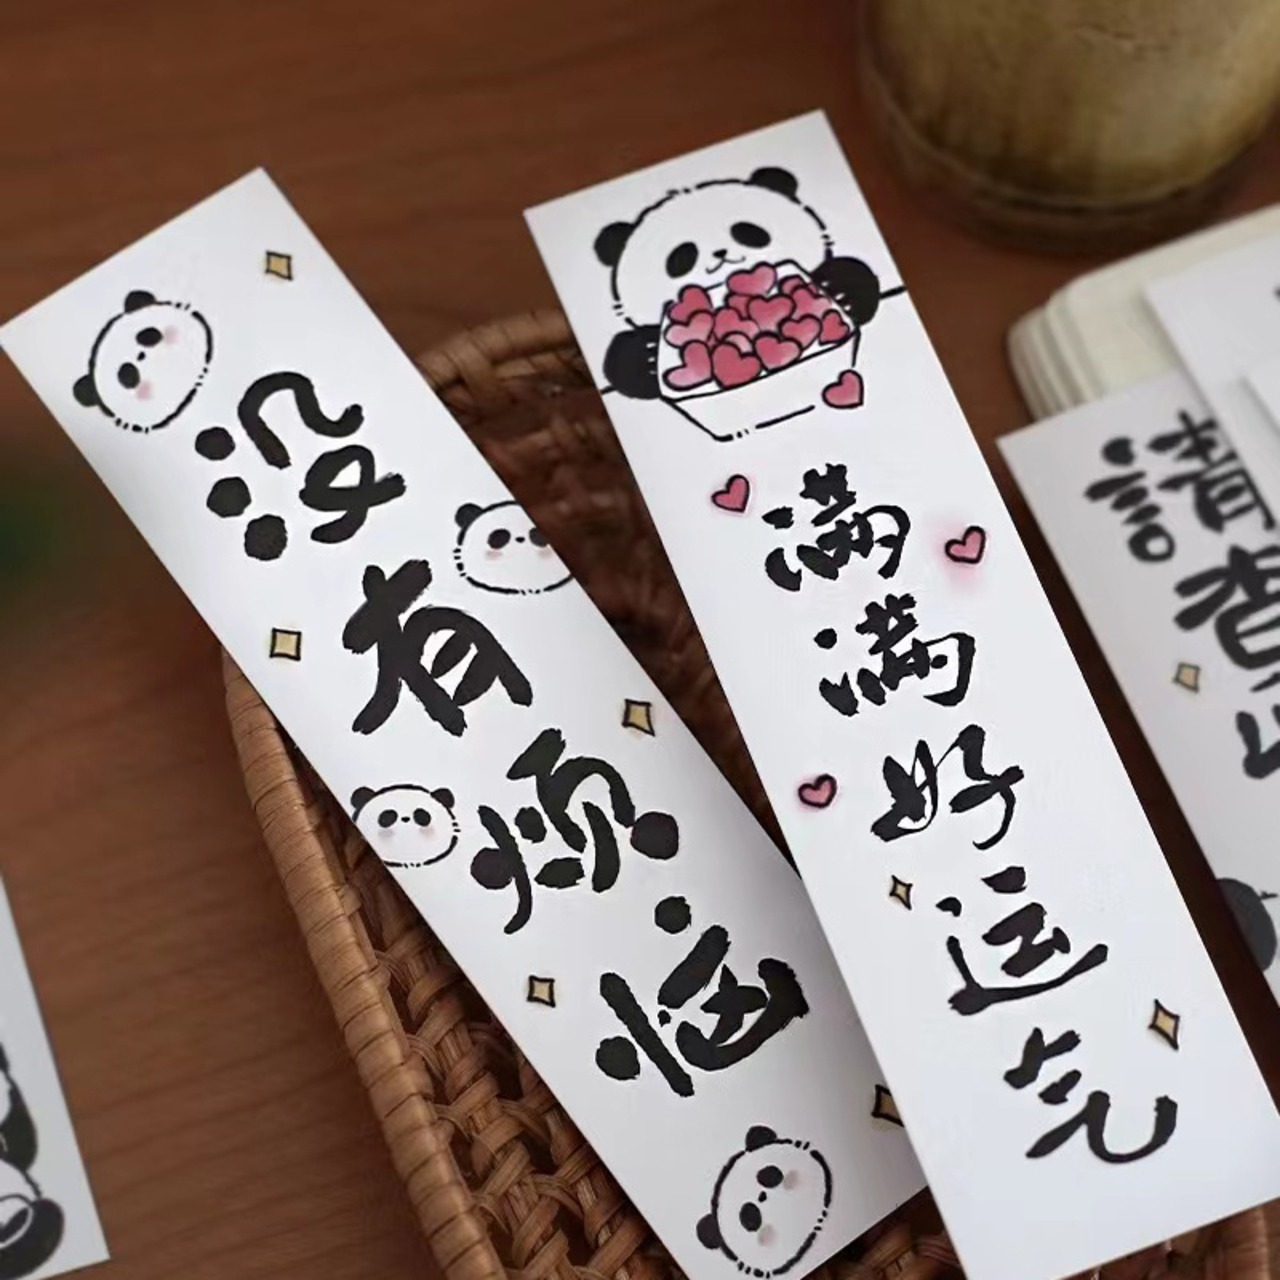 没有烦恼
满满好运气